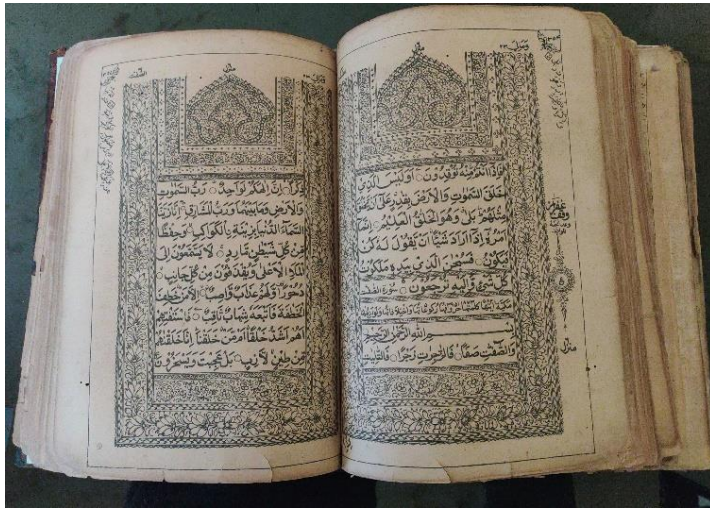 فَاِذَآ اَنْتُمْ مِّنْهُ تُوْقِدُوْنَ ○ اَوَلَيْسَ الَّذِيْ
خَلَقَ السَّمٰوٰتِ وَالْاَرْضَ بِقٰدِرٍ عَلٰٓى اَنْ يَّخْلُقَ
مِثْلَهُمْ بَلٰى وَهُوَ الْخَلّٰقُ الْعَلِيْمُ ○ اِنَّمَآ
اَمْرُهٗٓ اِذَآ اَرَادَ شَيْـًٔا اَنْ يَّقُوْلَ لَهٗ كُنْ
فَيَكُوْنُ ○ فَسُبْحٰنَ الَّذِيْ بِيَدِهٖ مَلَكُوْتُ
كُلِّ شَيْءٍ وَّاِلَيْهِ تُرْجَعُوْنَ ○ سورة الصّٰفّٰت
بِسْمِ اللّٰهِ الرَّحْمٰنِ الرَّحِيْمِ
وَالصّٰٓفّٰتِ صَفًّا ○ فَالزّٰجِرٰتِ زَجْرًا ○ فَالتّٰلِيٰتِ
وقف غفران
منزل
ذِكْرًا ○ اِنَّ اِلٰهَكُمْ لَوَاحِدٌ ○ رَبُّ السَّمٰوٰتِ
وَالْاَرْضِ وَمَا بَيْنَهُمَا وَرَبُّ الْمَشَارِقِ ○ اِنَّا زَيَّنَّا
السَّمَآءَ الدُّنْيَا بِزِيْنَةِ ۨالْكَوَاكِبِ ○ وَحِفْظًا
مِّنْ كُلِّ شَيْطٰنٍ مَّارِدٍ ○ لَا يَسَّمَّعُوْنَ اِلَى
الْمَلَاِ الْاَعْلٰى وَيُقْذَفُوْنَ مِنْ كُلِّ جَانِبٍ ○
دُحُوْرًا وَّلَهُمْ عَذَابٌ وَّاصِبٌ ○ اِلَّا مَنْ خَطِفَ
الْخَطْفَةَ فَاَتْبَعَهٗ شِهَابٌ ثَاقِبٌ ○ فَاسْتَفْتِهِمْ
اَهُمْ اَشَدُّ خَلْقًا اَمْ مَّنْ خَلَقْنَا اِنَّا خَلَقْنٰهُمْ
مِّنْ طِيْنٍ لَّازِبٍ ○ بَلْ عَجِبْتَ وَيَسْخَرُوْنَ ○